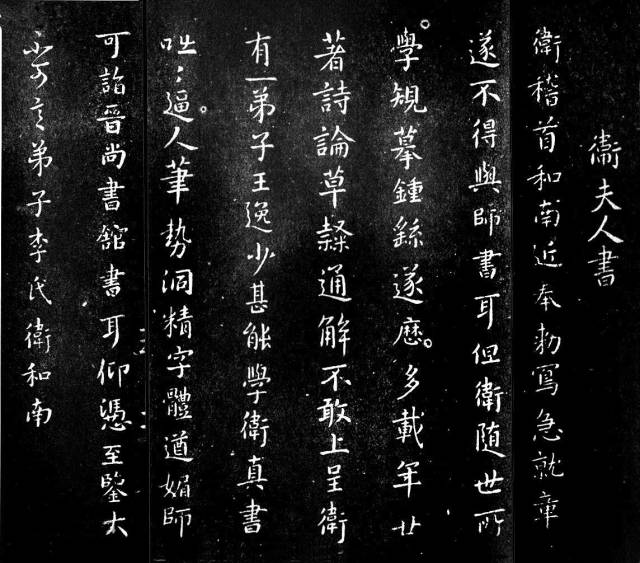 衛夫人書
衛稽首和南近奉勅寫急就章
遂不得與師書耳但衛隨世所
學規摹鍾繇遂歷多載年廿
著詩論草隸通解不敢上呈衛
有一弟子王逸少甚能學衛真書
咄〻逼人筆勢洞精字體遒媚師
可詣晉尚書館書耳仰憑至鑒大
不可言弟子李氏衛和南